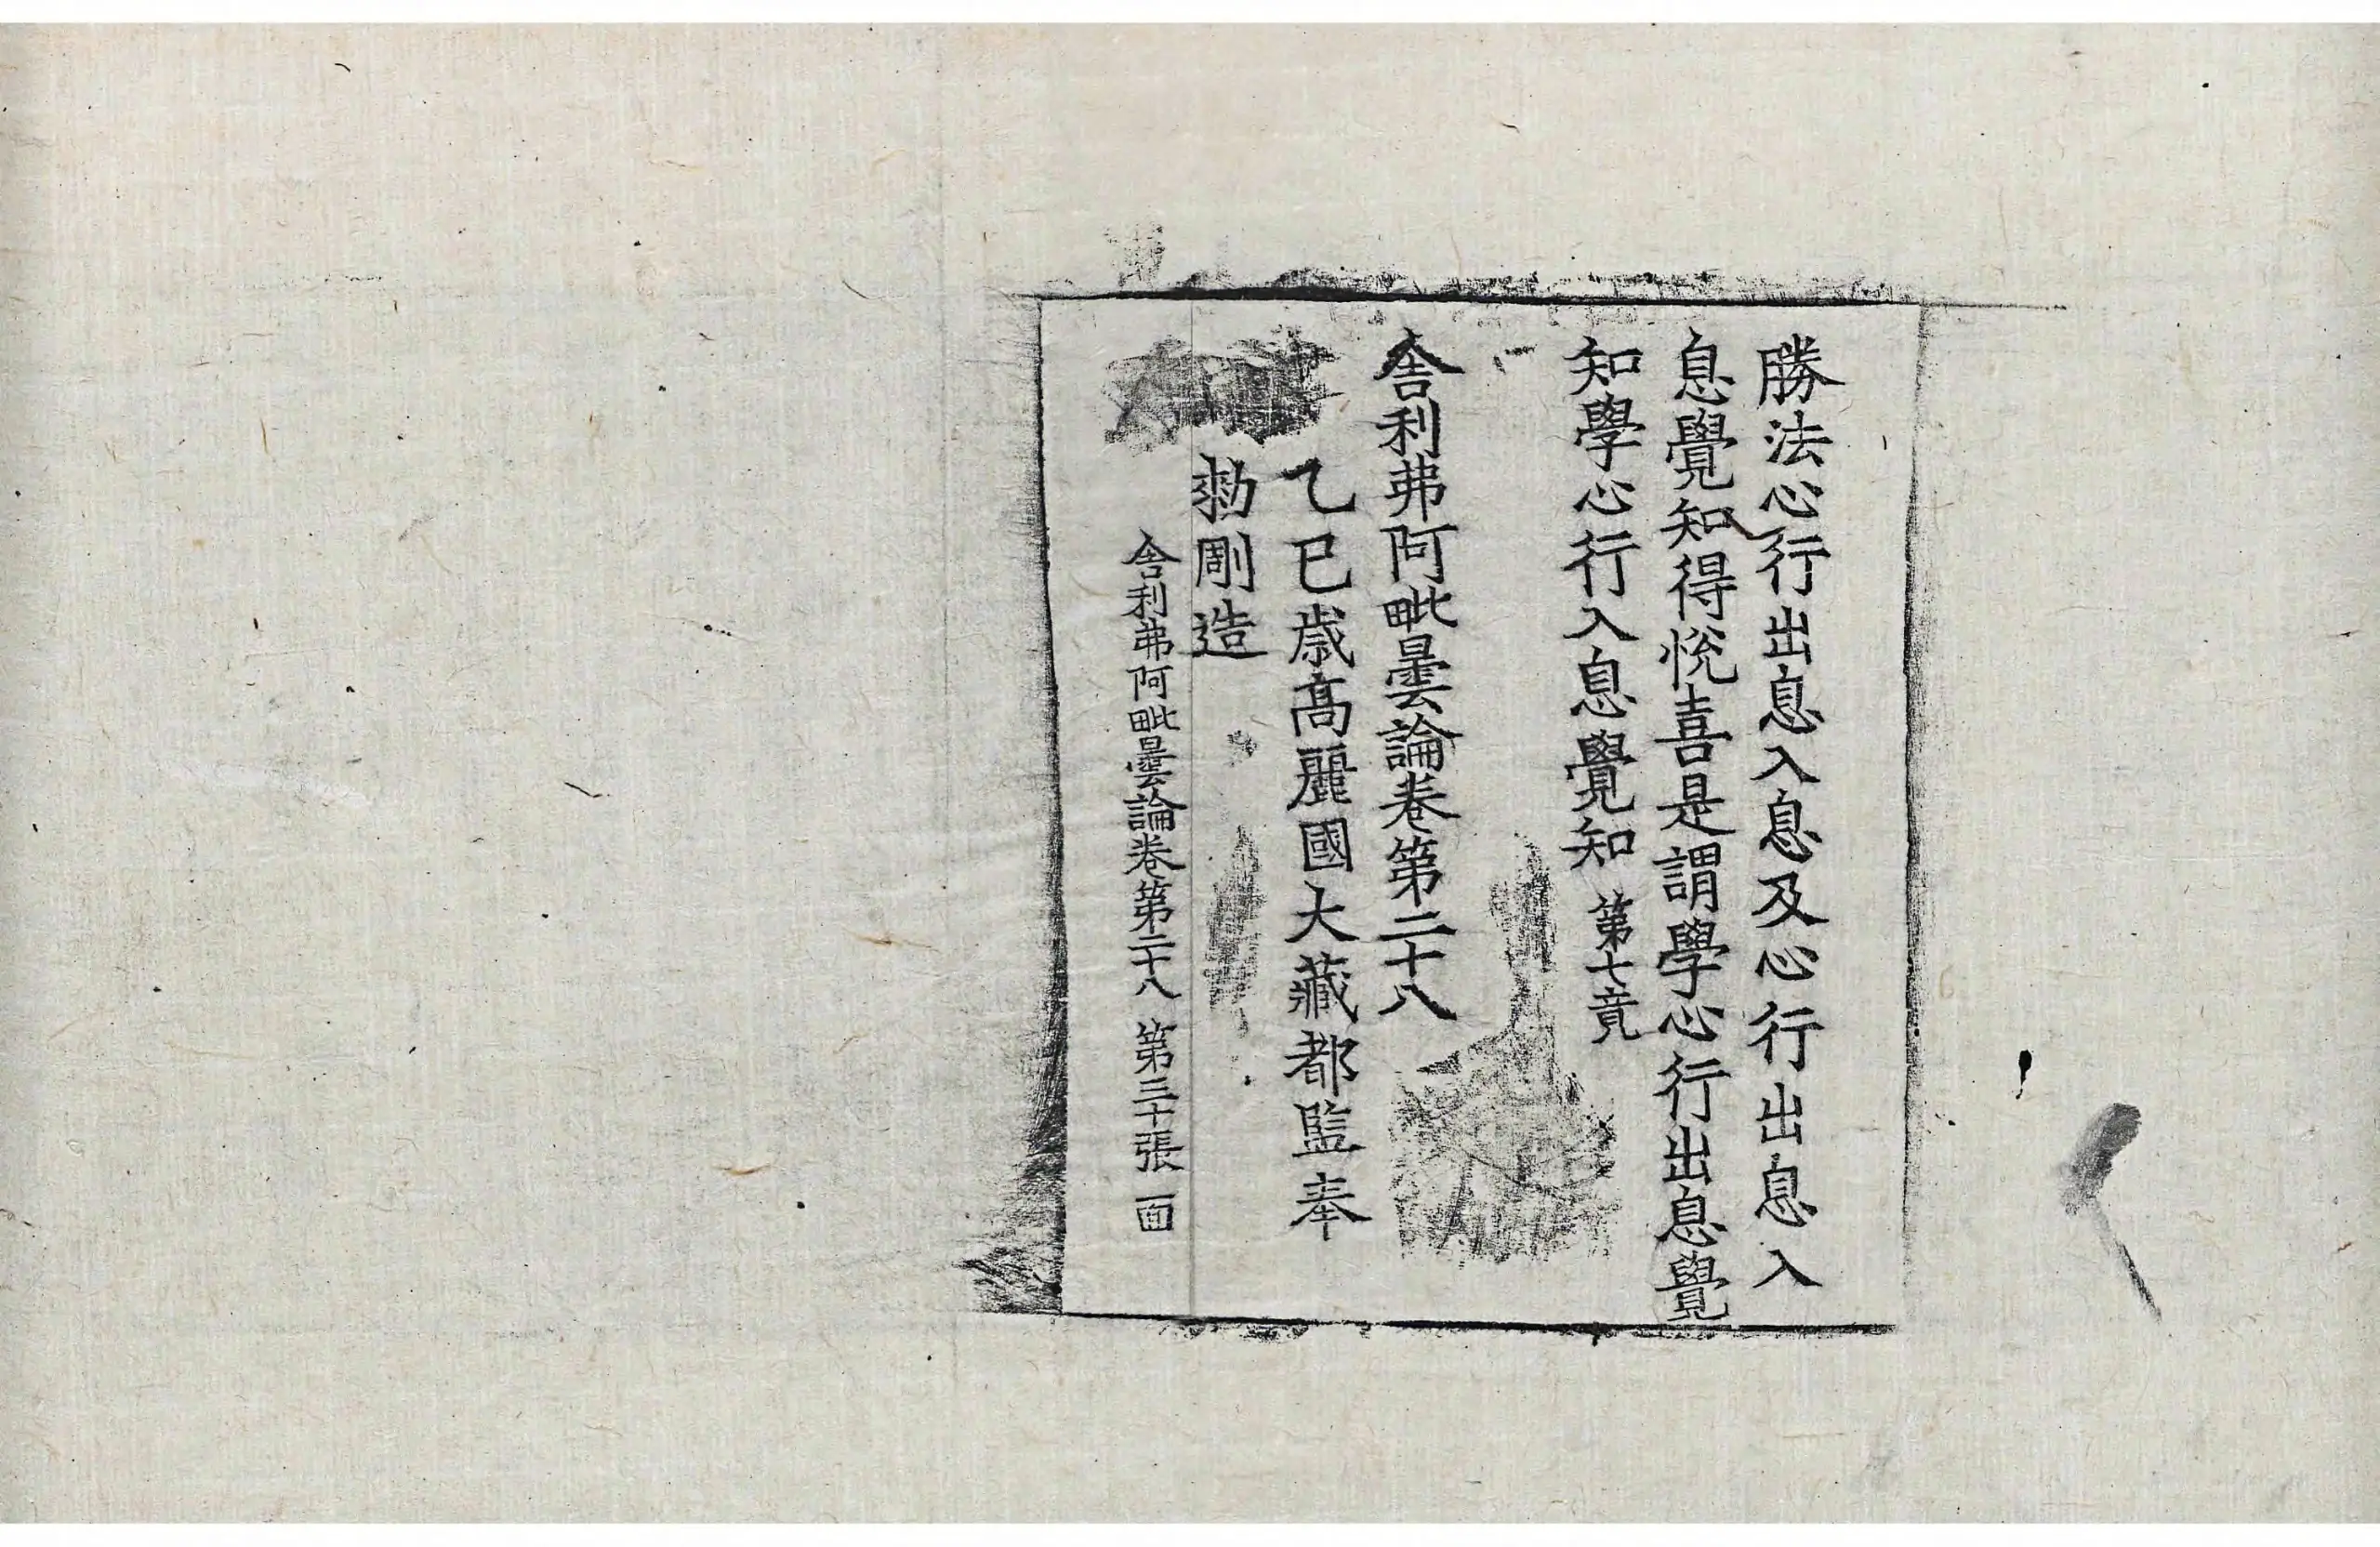 勝法心行出息入息及心行出息入
息覺知得悅喜是謂學心行出息覺
知學心行入息覺知 第七竟
舎利弗阿毗曇論卷第二十八
乙巳歲髙麗國大藏都監奉
勑彫造
舎利弗阿毗曇論卷第二十八 第三十張 面